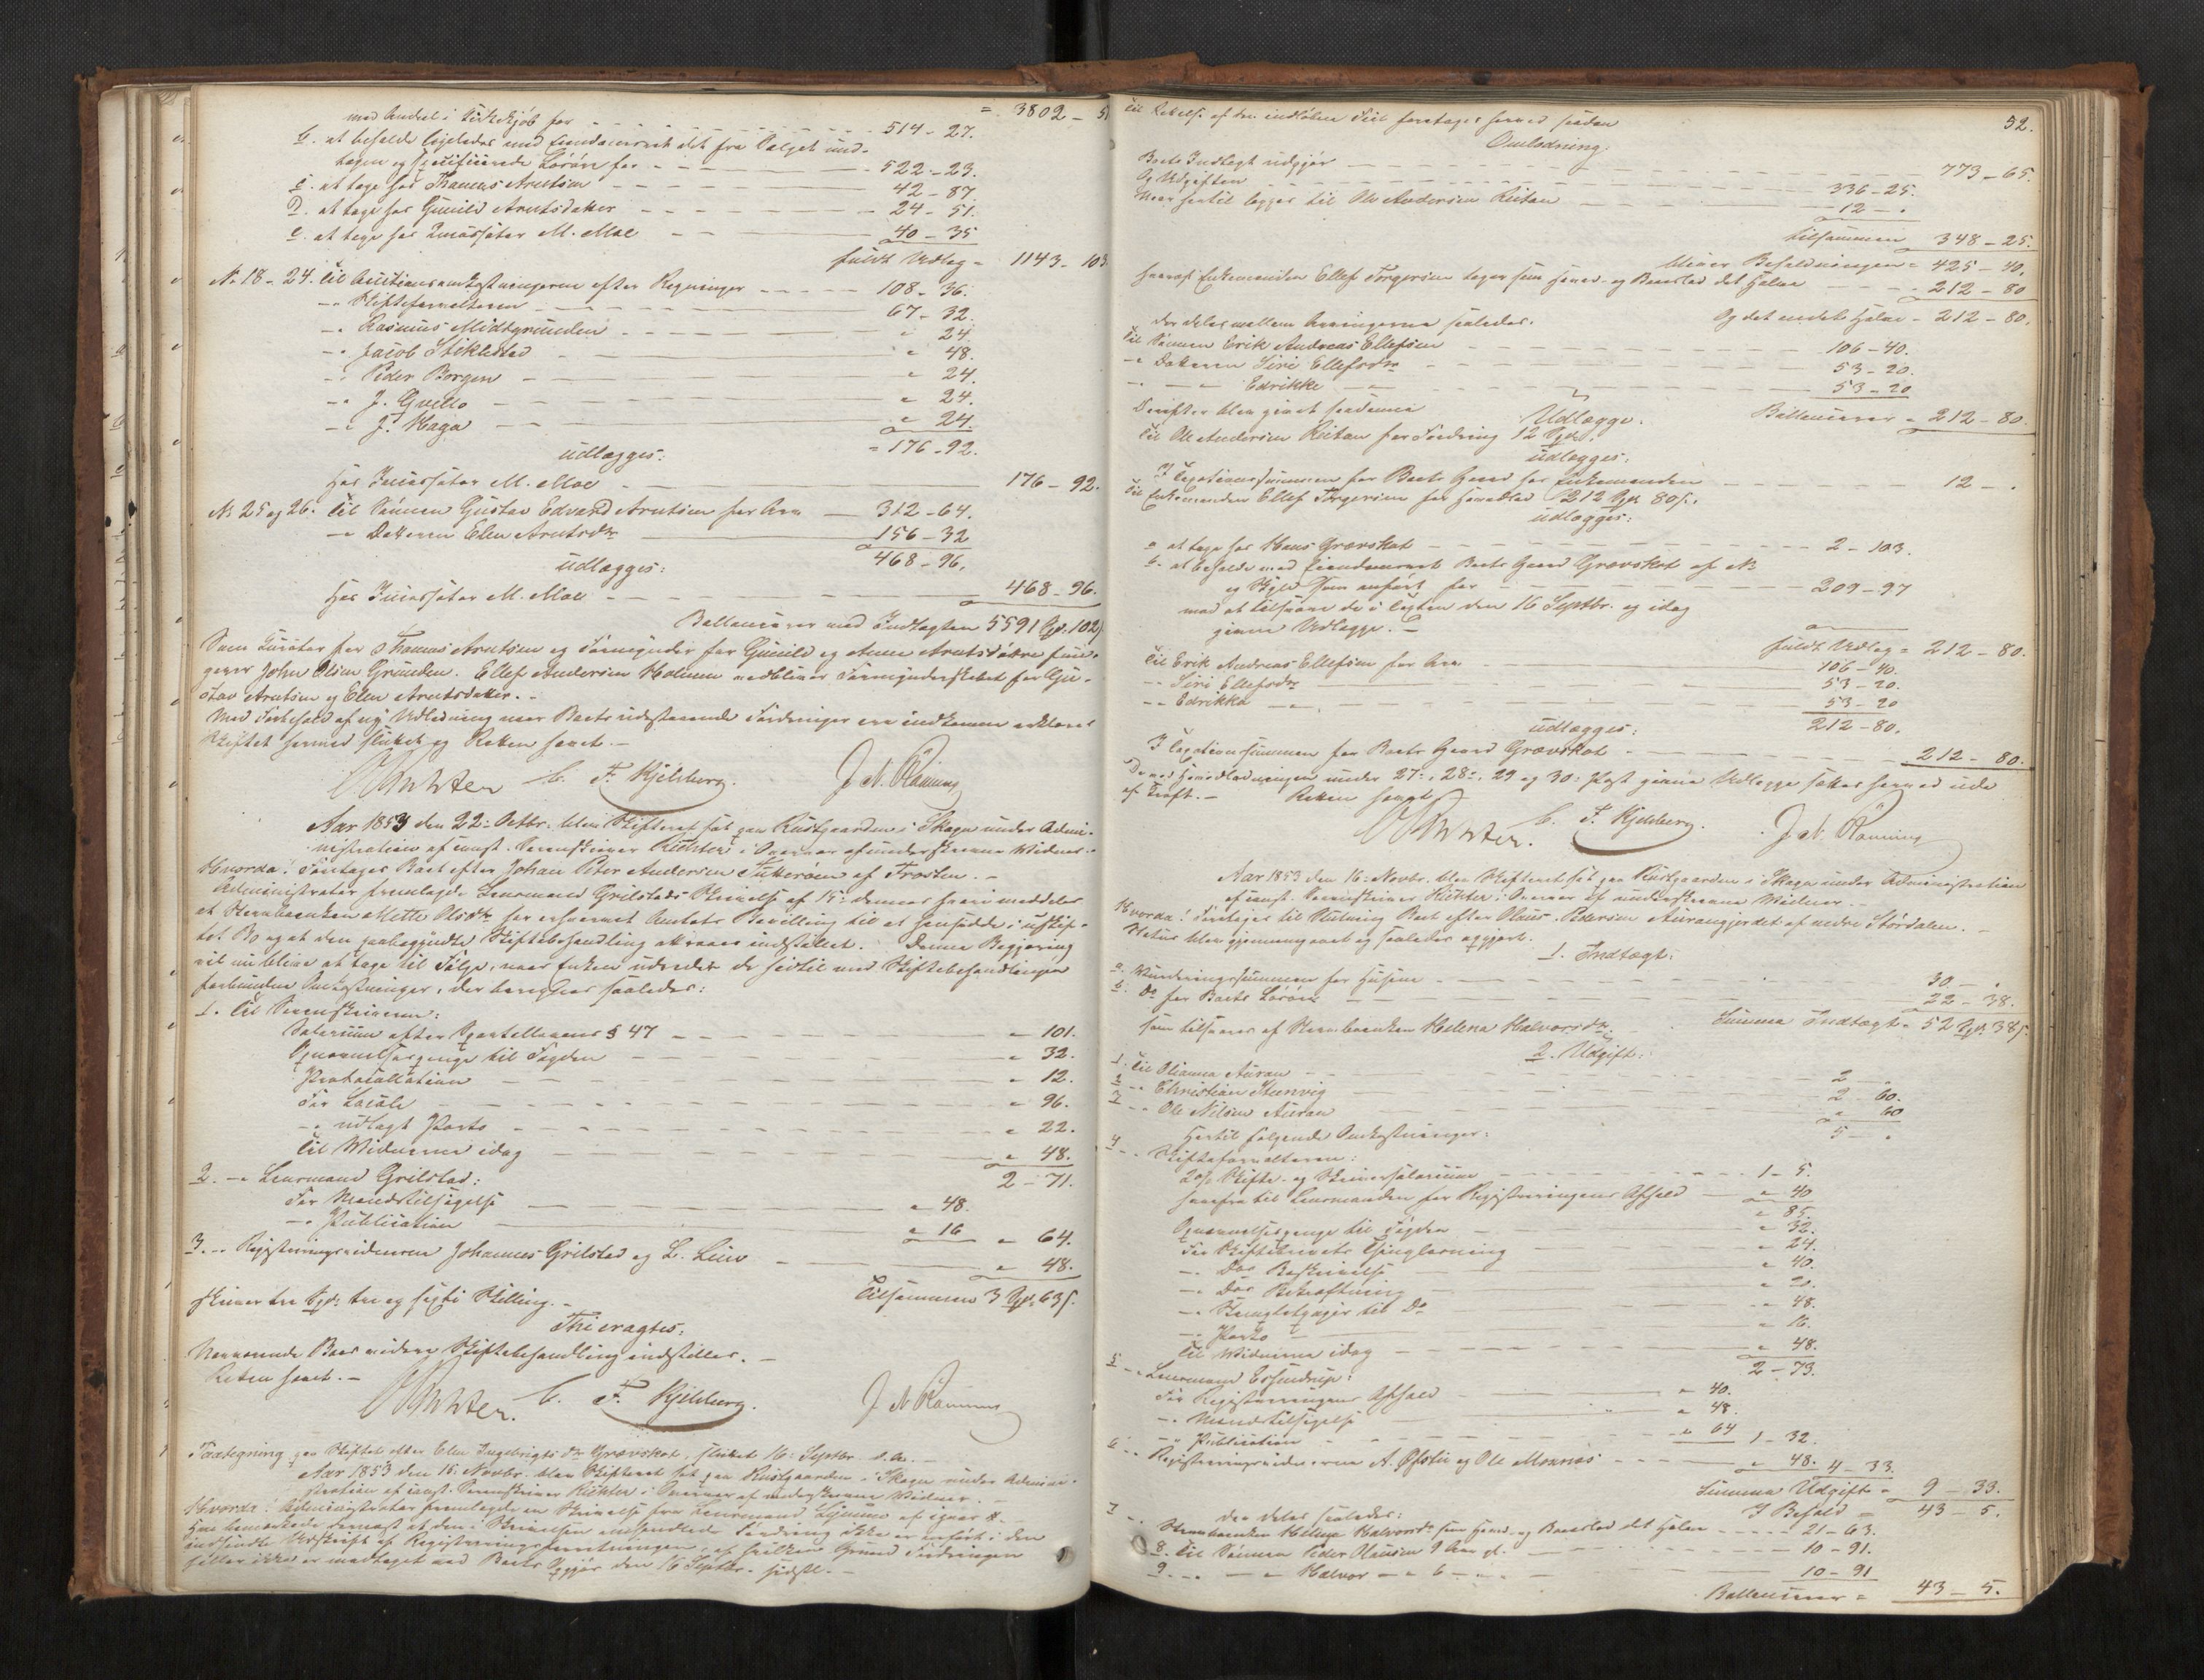 med Andel i Kirkekjøb for = 3802 - 5
514 - 27.
b. at beholde ligeledes med Eiendomsret det fra Salget und-
tagen og specificerede Løsøre for 522 - 23.
c. at tage hos Thomas Arntsen 42 - 87
D. at tage hos Gunild Arntsdatter 24 - 51.
e. at tage hos Inkassator M. Moe 40 - 35
fuldt Udlæg = 1143 - 103
No 18 - 24. Til Auctionsomkostningerne efter Regninger 108 - 36.
-" Skifteforvalteren 67 - 32.
-" Rasmus Midtgrunden " 24
-" Jacob Stiklestad " 48.
-" Peder Borgen " 24.
-" J. Qvello " 24.
-" J. Haga " 24.
= 176 - 92.
udlægges:
Hos Incassator M. Moe 176 - 92.
No 25 og 26. Til Sønnen Gustav Edvard Arntsen for Arv 312 - 64.
-" Datteren Elen Arntsdtr 156 - 32
468 - 96.
udlægges:
Hos Incassator M. Moe 468 - 96.
Ballancerer med Indtægten 5591 Spd. 102 s
Som Curator for Thomas Arntsen og Formynder for Gunild og Anne Arntsdøtre fun-
gerer John Olsen Grunden. Ellef Andersen Holmen vedbliver Formynderskabet for Gu-
stav Arntsen og Elen Arntsdatter. -
Med Forbehold af ny Udlodning naar Boets udestaaende Fordringer ere indkomne erklæres
Skiftet hermed sluttet og Retten hævet. -
Richter C. F. Kjelsberg. J. N. Rønning
Aar 1853 den 22. Octbr. blev Skifteret sat paa Rustgaarden i Skogn under Admi-
nistration af const. Sorenskriver Richter i Overvær af underskrevne Vidner. -
Hvorda: Foretoges Boet efter Johan Peter Andersen Tukerøen af Frosten. -
Administrator fremlagde Lensmand Grilstads Skrivelse af 15. dennes hvori meddeles
at Stervboenken Mette Olsdtr har erhvervet Amtets Bevilling til at hensidde i uskif-
tet Bo og at den paabegyndte Skiftebehandling attraaes indstillet. Denne Begjæring
vil nu blive at tage til Følge, naar Enken udreder de hidtil med Skiftebehandlingen
forbundne Omkostninger, der beregnes saaledes:
1. Til Sorenskriveren:
Salarium efter Sportellovens § 47 " 101.
Opnævnelsespenge til Fogden " 32.
Protocollation " 12.
For Locale " 96.
-" udlagt Porto " 22.
Til Vidnerne idag " 48.
2 - 71.
2. -" Lensmand Grilstad:
For Mændstilsigelse " 48.
-" Publication " 16 " 64.
3. -" Registreringsvidnerne Johannes Grilstad og L. Liuv " 48.
Tilsammen 3 Spd. 63 s.
skriver tre Spd: tre og sexti Skilling. -
Thi eragtes:
Nærværende Boes videre Skiftebehandling indstilles. -
Retten hævet. -
Richter. C. F. Kjelsberg. J. N. Rønning
Paategning paa Skiftet efter Elen Ingebrigts dtr Grævskot, sluttet 16. Septbr. d. A. -
Aar 1853 den 16. Novbr. blev Skifteret sat paa Rustgaarden i Skogn under Admini-
stration af const. Sorenskriver Richter i Overvær af underskrevne Vidner. -
Hvorda: Administrator fremlagde en Skrivelse fra Lensmand
Han bemærkede dernæst at den i Skrivelsen omhandlede Fordring ikke er anført i den
indsendte Udskrift af Registreringsforretningen, af hvilken Grund Fordringen
heller ikke er medtaget ved Boets Opgjør den 16 Septbr. sidstl. -
52.
Til Rettelse af den indløbne Feil foretages herved saadan
Omlodning:
Boets Indtægt udgjør 773 - 65.
Og Udgiften 336 - 25.
Hvor hertil lægges til Ole Andersen Rietan 12 - "
tilsammen 348 - 25.
bliver Beholdningen = 425 - 40.
hvoraf Enkemanden Ellef Torgersen tager som Hoved- og Broderlod det Halve 212 - 80
Og det andet Halve - 212 - 80.
der deles mellem Arvingerne saaledes.
Til Sønnen Erik Andreas Ellefsen 106 - 40.
-" Datteren Siri Ellefsdtr 53 - 20.
-" -" Edrikke -" 53 - 20
Ballancerer = 212 - 80.
Derefter blev gjort saadanne Udlægge.
Til Ole Andersen Rietan for Fordring 12 Spd.
udlægges:
I Taxationssummen for Boets Gaard hos Enkemanden 12 - "
Til Enkemanden Ellef Torgersen for Hovedlod 212 Spd 80 s.
udlægges:
a at tage hos Hans Grævskot 2 - 103.
b. at beholde med Eiendomsret Boets Gaard Grævskot af No
og Skyld som anført for 209 - 97
mod at tilsvare de i Ligten den 16 Septbr. og idag
gjorte Udlægge. -
fuldt Udlæg = 212 - 80.
Til Erik Andreas Ellefsen for Arv 106 - 40.
-" Siri Ellefsdtr 53 - 20.
-" Edrikke -" 53 - 20
212 - 80.
udlægges:
I Taxationssummen for Boets Gaard Grævskot 212 - 80.
De ved Hovedlodningen under 27., 28., 29 og 30: Post gjorte Udlægge sættes herved ude
af Kraft. - Retten hævet.
Richter. C. F. Kjelsberg. J. N. Rønning
Aar 1853 den 16. Novbr. blev Skifteret sat paa Rustgaarden i Skogn under Administration
af const. Sorenskriver Richter i Overvær af underskrevne Vidner. -
Hvorda: Foretoges til Slutning Boet efter Olaus Pedersen Aurangjerdet af nedre Størdalen. -
Status blev gjennemgaaet og saaledes opgjort.
1. Indtægt:
a. Vurderingssummen for Husene 30 - "
b. Do for Boets Løsøre 22 - 38.
Summa Indtægt = 52 Spd. 38 s.
som tilsvares af Stervboenken Helena Halvorsdtr.
2. Udgift:
1. Til Olianna Auran 2 - "
2 -" Christian Steenvig 2 - 60.
3 -" Ole Nilsen Auran " 60
5 - "
Hertil følgende Omkostninger:
4 -" Skifteforvalteren:
2 o/o Skifte- og Skriversalarium 1 - 5.
herfra til Lensmanden for Registreringens Afhold " 40
" 85.
Opnævnelsespenge til Fogden " 32.
For Skiftebrevets Thinglæsning " 24.
-" Dos Beskrivelse " 40.
-" Dos Bekræftning " 20.
-" Stemplet papir til Do " 48.
-" Porto " 16.
Til Vidnerne idag " 48.
2 - 73.
5 -" Lensmand Essendrup:
For Registreringens Afhold " 40.
-" Mændstilsigelse " 48.
-" Publication " 64 1 - 32.
6 -" Registreringsvidnerne A. Østli og Ole Monnæs " 48. 4 - 33.
Summa Udgift = 9 - 33.
I Behold = 43 - 5.
der deles saaledes:
7 -" Stervboenken Helene Halvorsdtr som Hoved- og Broderlod det Halve 21 - 63.
8. Til Sønnen Peder Olausen 9 Aar gl. 10 - 91.
9. -" -" Halvor -" 6 -" 10 - 91
Ballancerer = 43 - 5.